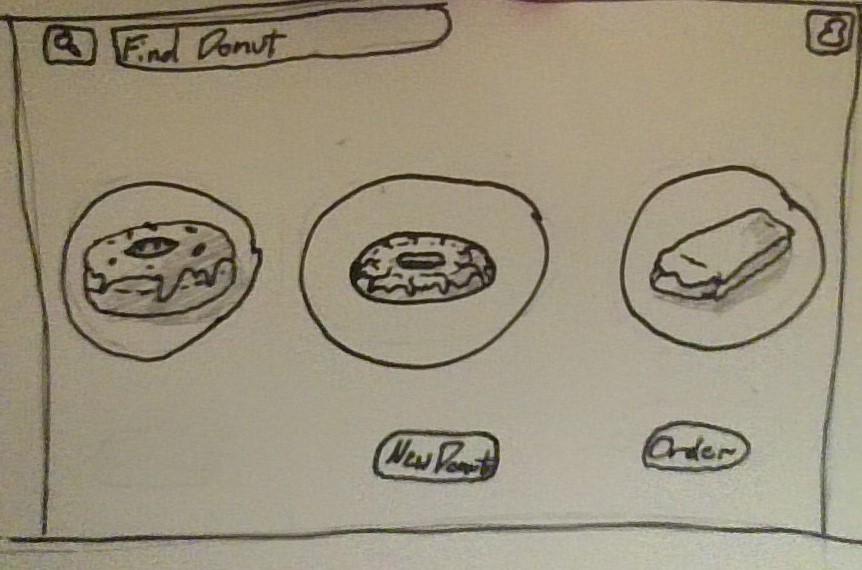 Find Donut
New Donut
Order